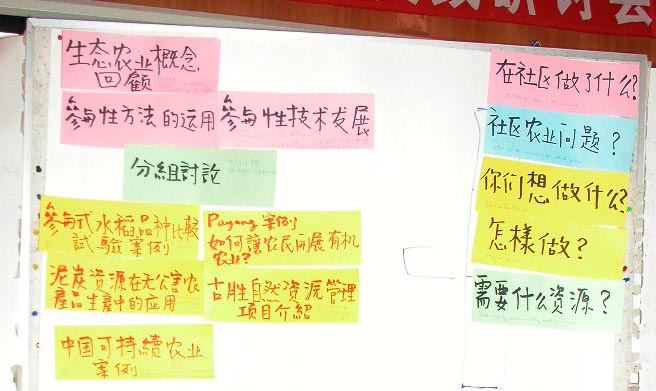 研讨会
生态农业概念
回顾
參与性方法的运用
參与性技术发展
分组討论
參与式水稻品种比較
試驗案例
Payang案例
如何讓农民开展有机
农业?
泥炭资源在无公害农
產品生產中的应用
古胜自然资源管理
项目介紹
中国可持續农业
案例
在社区做了什么?
社区农业问题?
你们想做什么?
怎樣做?
需要什么资源?